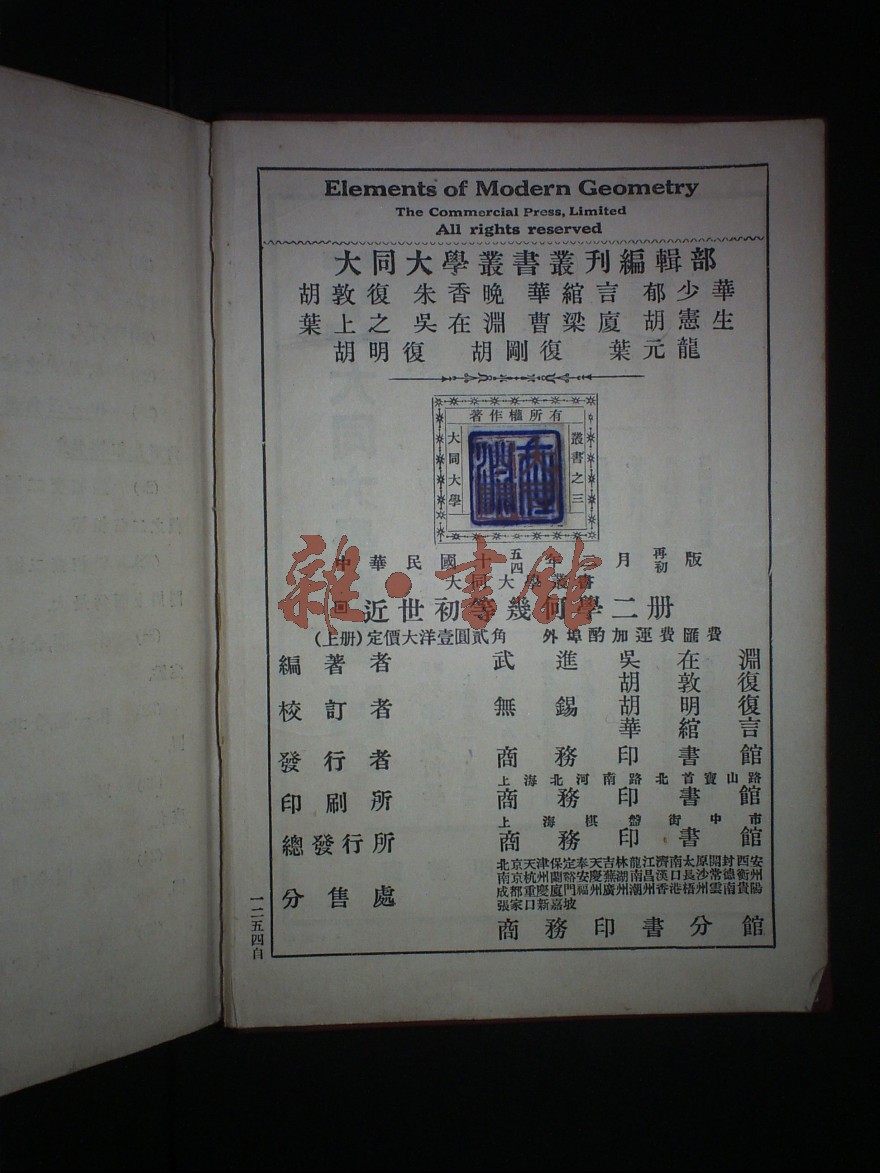 Elements of Modern Geometry
The Commercial Press, Limited
All rights reserved
大同大學叢書叢刊編輯部
胡敦復 朱香晚 華綰言 郁少華
葉上之 吳在淵 曹梁廈 胡憲生
胡明復 胡剛復 葉元龍
有所權作著
叢書之三
大同大學
中華民國十五四年 月再初版
大同大學叢書
近世初等幾何學二册
(上册)定價大洋壹圓貳角 外埠酌加運費匯費
編著者 武進 吳在淵
胡敦復
校訂者 無錫 胡明復
華綰言
發行者 商務印書館
上海北河南路北首寶山路
印刷所 商務印書館
上海棋盤街中市
總發行所 商務印書館
北京天津保定奉天吉林龍江濟南太原開封西安
南京杭州蘭谿安慶蕪湖南昌漢口長沙常德衡州
成都重慶廈門福州廣州潮州香港梧州雲南貴陽
張家口新嘉坡
分售處
商務印書分館
一二五四自
雜·書館